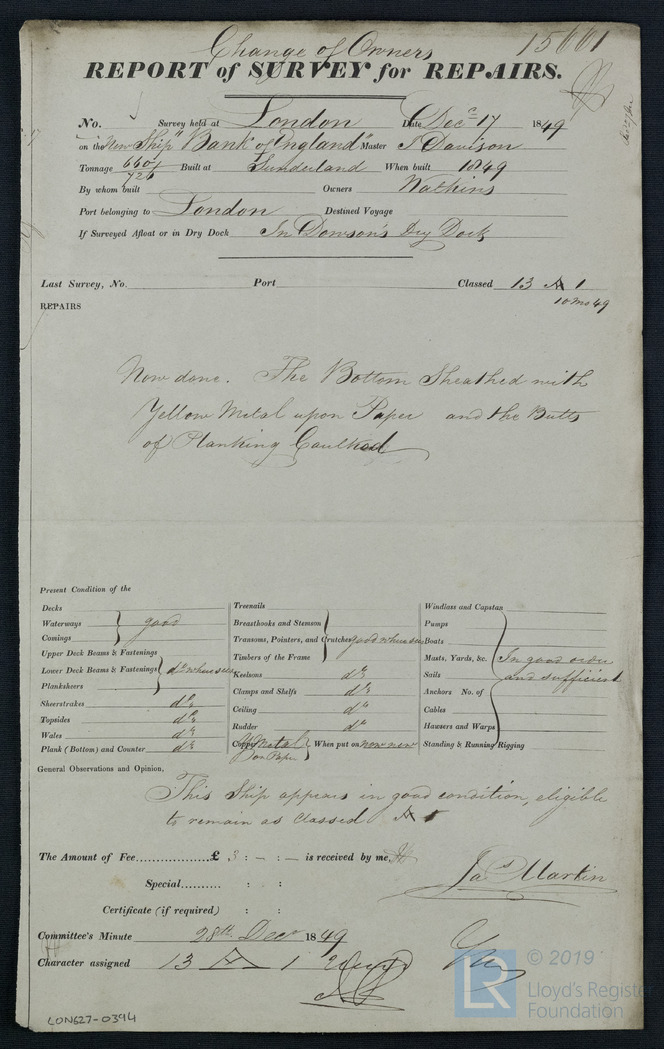 Change of Owners 15601
REPORT of SURVEY for REPAIRS.
No. Survey held at London Date Decr 17 1849
on the New Ship "Bank of England" Master Davison
Tonnage 660/726 Built at Sunderland When built 1849
By whom built Owners Watkins
Port belonging to London Destined Voyage
If Surveyed Afloat or in Dry Dock In Dowson's Dry Dock
Last Survey, No. Port Classed 13 A 1
10 mo 49
REPAIRS
Now done. The Bottom Sheathed with
Yellow Metal upon Paper and the Butts
of Planking Caulked
Present Condition of the
Decks
Waterways good
Comings
Upper Deck Beams & Fastenings
Lower Deck Beams & Fastenings do where seen
Planksheers
Sheerstrakes do
Topsides do
Wales do
Plank (Bottom) and Counter do
Treenails
Breasthooks and Stemson
Transoms, Pointers, and Crutches good where seen
Timbers of the Frame
Keelsons do
Clamps and Shelfs do
Ceiling do
Rudder do
Copper Y Metal on Paper When put on now new
Windlass and Capstan
Pumps
Boats
Masts, Yards, &c. In good order
Sails and sufficient
Anchors No. of
Cables
Hawsers and Warps
Standing & Running Rigging
General Observations and Opinion,
This Ship appears in good condition, eligible
to remain as classed A 1
The Amount of Fee £ 3 : – : – is received by me,
Special : :
Jas Martin
Certificate (if required) : :
Committee's Minute 28th Decr 1849
Character assigned 13 A 1
LON627-0394
LR
© 2019
Lloyd's Register
Foundation